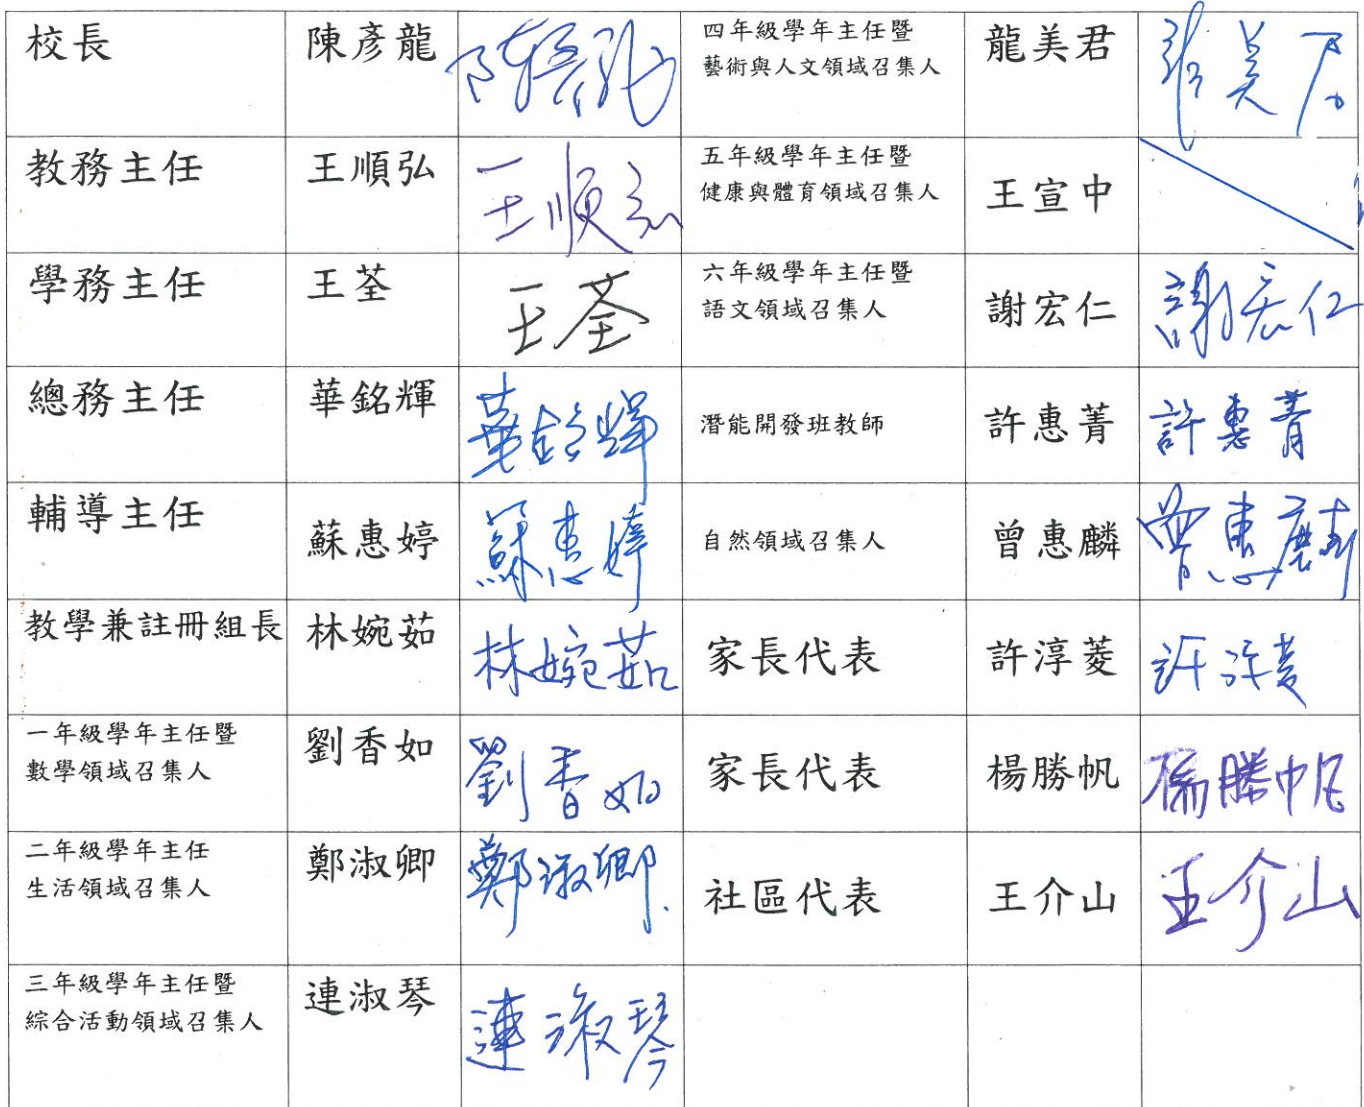 校長
陳彥龍
陳彥龍
四年級學年主任暨
藝術與人文領域召集人
龍美君
教務主任
王順弘
王順弘
五年級學年主任暨
健康與體育領域召集人
王宣中
學務主任
王荃
王荃
六年級學年主任暨
語文領域召集人
謝宏仁
謝宏仁
總務主任
華銘輝
華銘輝
潛能開發班教師
許惠菁
許惠菁
輔導主任
蘇惠婷
蘇惠婷
自然領域召集人
曾惠麟
曾惠麟
教學兼註冊組長
林婉茹
林婉茹
家長代表
許淳菱
許淳菱
一年級學年主任暨
數學領域召集人
劉香如
劉香如
家長代表
楊勝帆
楊勝帆
二年級學年主任
生活領域召集人
鄭淑卿
鄭淑卿
社區代表
王介山
王介山
三年級學年主任暨
綜合活動領域召集人
連淑琴
連淑琴